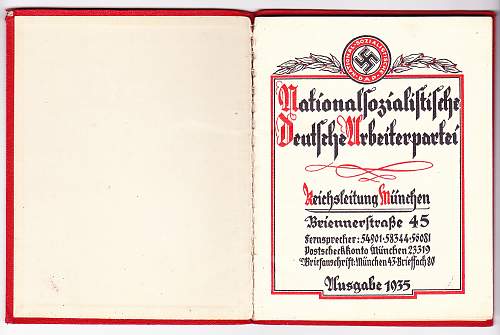 NATIONAL-SOZIALISTISCHE
D.A.P.
Nationalsozialistische
Deutsche Arbeiterpartei
Reichsleitung München
Briennerstraße 45
Fernsprecher: 54901·58344·56081
Postscheckkonto München 23319
Briefanschrift: München 43·Brieffach 80
Ausgabe 1935